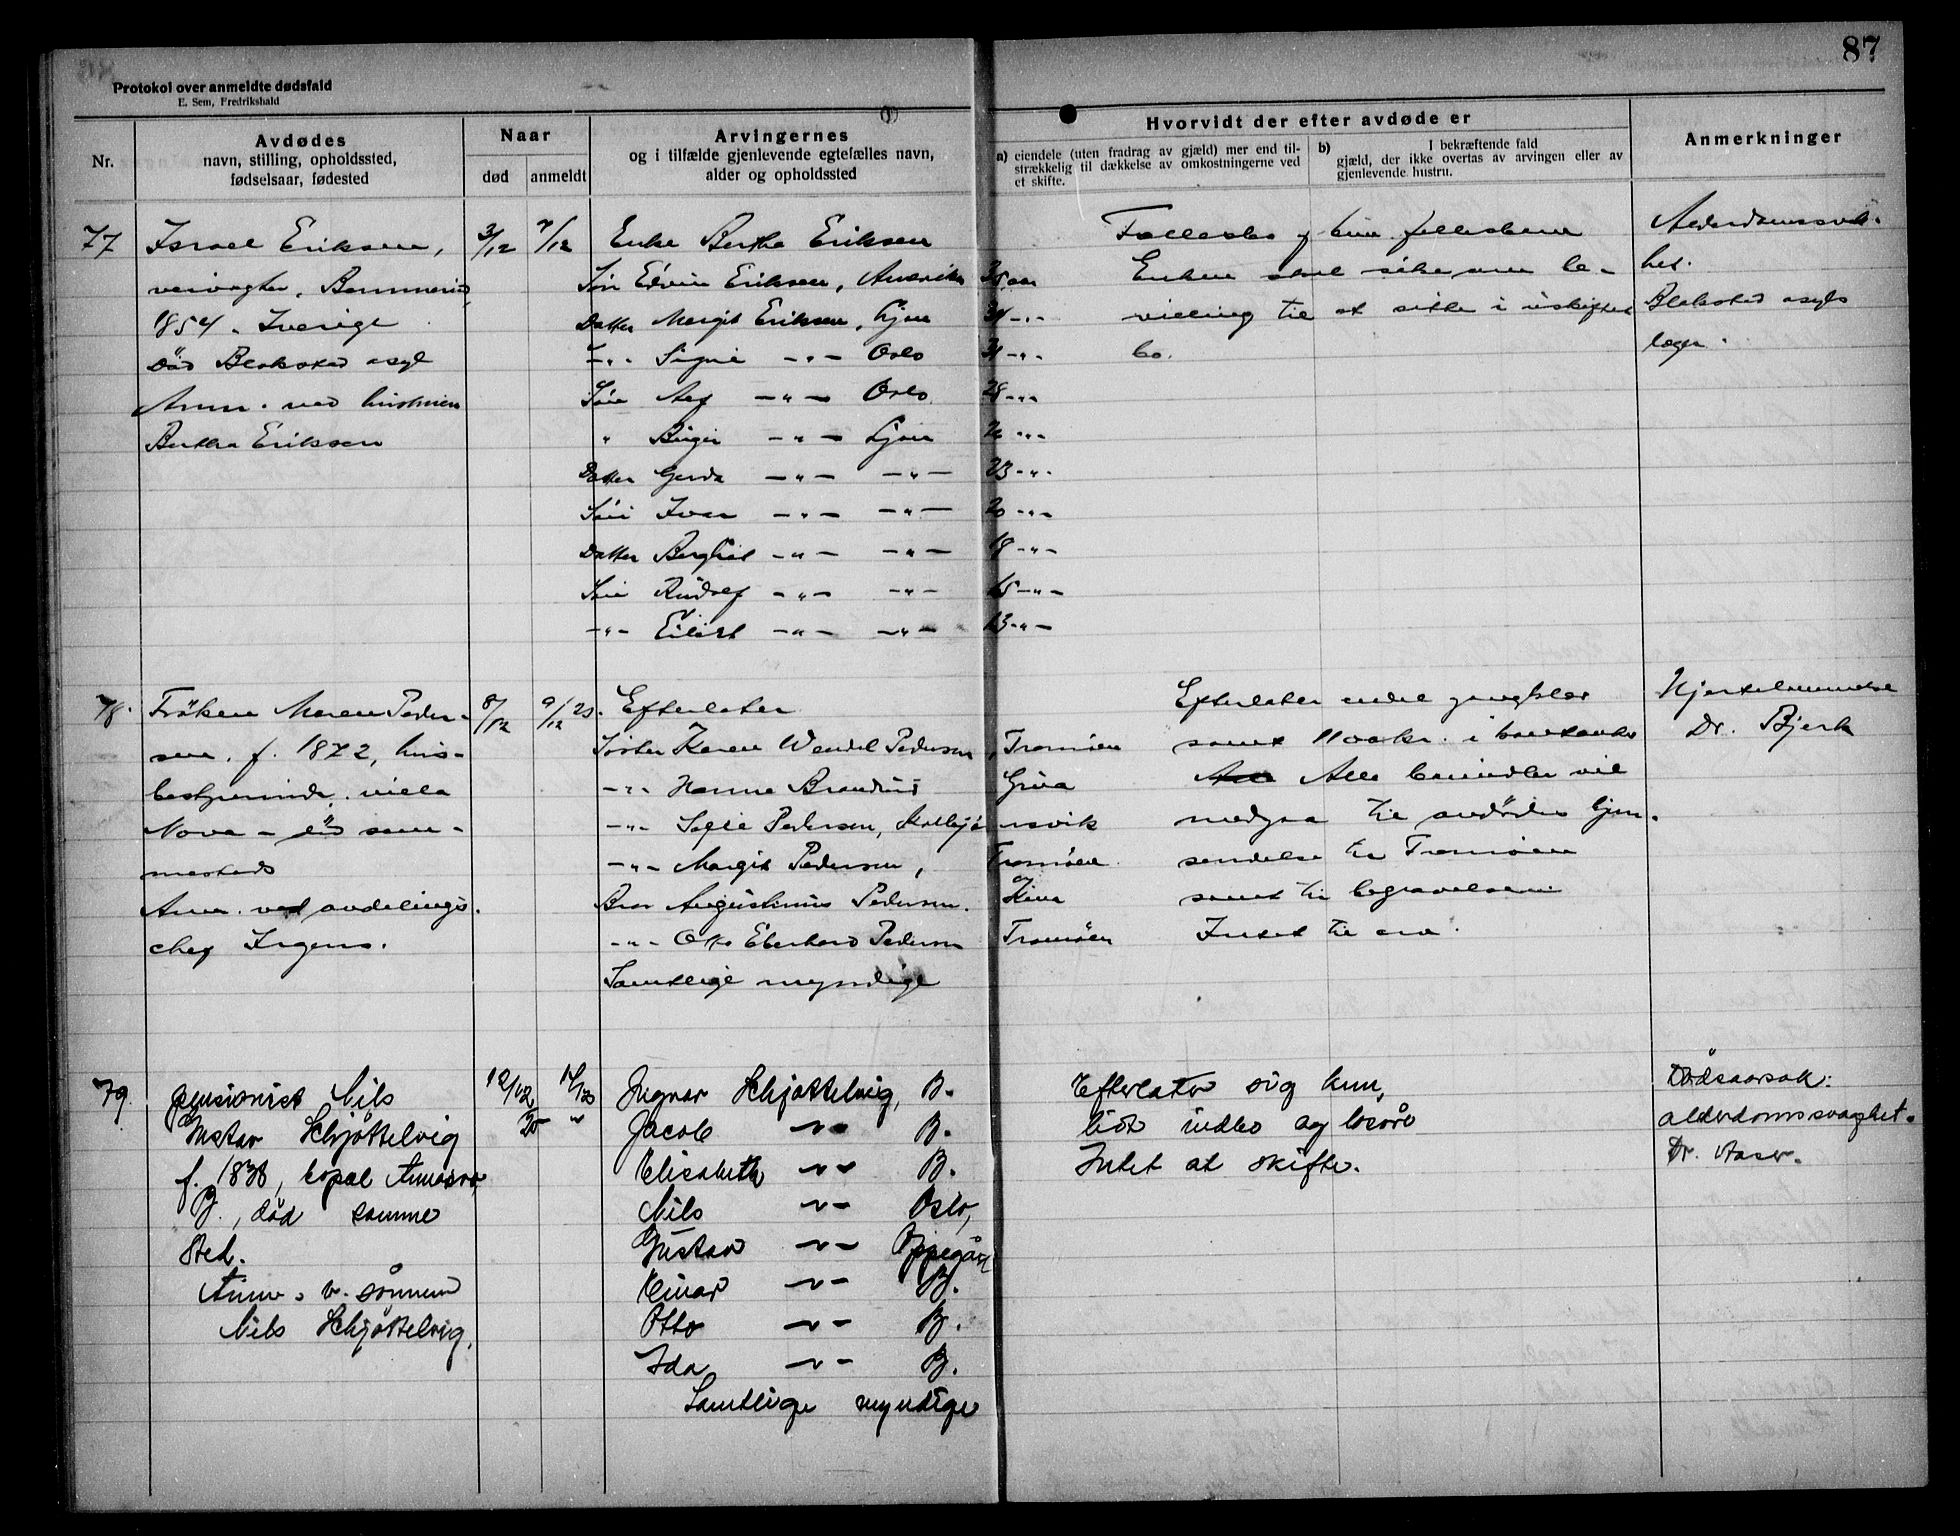 87
Protokol over anmeldte dødsfald
E. Sem, Fredrikshald
Nr.
Avdødes
navn, stilling, opholdssted,
fødselsaar, fødested
Naar
død
anmeldt
Arvingernes
og i tilfælde gjenlevende egtefælles navn,
alder og opholdssted
Hvorvidt der efter avdøde er
a) eiendele (uten fradrag av gjæld) mer end til-
strækkelig til dækkelse av omkostningerne ved
et skifte.
b) I bekræftende fald
gjæld, der ikke overtas av arvingen eller av
gjenlevende hustru.
Anmerkninger
77
Israel Eriksen,
veivogter,
1854. Sverige
Død Blakstad asyl
Anm. ved hustruen
Bertha Eriksen
3/12
7/12
Enke Bertha Eriksen
Søn Edvin Eriksen, Amerika 35 aar
Datter Margit Eriksen, hjem 34 -"-
-"- Signe -"- Oslo 31 -"-
Søn Alf -"- Oslo 28 -"-
" Birger -"- hjem 26 -"-
Datter Gerda -"- -"- 23 -"-
Søn Ivar -"- -"- 20 -"-
Datter Borghild -"- -"- 18 -"-
Søn Rudolf -"- -"- 15 -"-
-"- Eilert -"- -"- 13 -"-
Enken skal søke om be-
villing til at sitte i uskiftet
bo.
Alderdomssvak-
het.
Blakstad asyls
læge.
78.
Frøken Maren Peder-
sen, f. 1872, hus-
bestyrerinde, villa
Nova - død sam-
mesteds
Anm. ved avdelings-
chef Irgens.
8/12
9/12 25.
Efterlater
Søster Karen Wendel Pedersen, Tromøen
-"- Hanna
-"- Sofie Pedersen, Kolbjørnsvik
-"- Margit Pedersen, Tromøen
Bror Augustinus Pedersen. Kina
-"- Otto Eberhard Pedersen Tromøen
Samtlige myndige
Efterlater endel gangklær
samt 1100 kr. i bankanker
Alle beindler vil
medgaa til avdødes hjem-
sendelse til Tromøen
samt til begravelsen.
Intet til arv.
Hjertelammelse
Dr. Bjerk
79.
pensionist Nils
Gustav Schjøttelvig
f. 1838,
B., død samme
sted.
Anm. v. sønnen
Nils Schjøttelvig.
12/12 25
Ingvar Schjøttelvig, B.
Jacob -"- B.
Elisabeth -"- B.
Nils -"- Oslo,
Gustav -"- Oppegård
Einar -"- B.
Otto -"- B.
Ida -"- B.
Samtlige myndige
Efterlater sig kun,
lidt indbo og løsøre
Intet at skifte.
Dødsaarsak:
alderdomssvaghet.
Dr. Aaser.